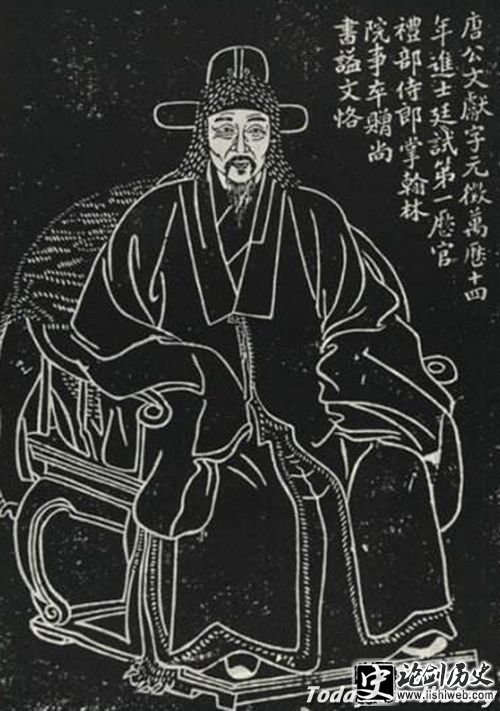 唐公文獻字元徵萬曆十四
年進士廷試第一歷官
禮部侍郎掌翰林
院事卒贈尚
書謚文恪
論劍歷史
www.lishiweb.com